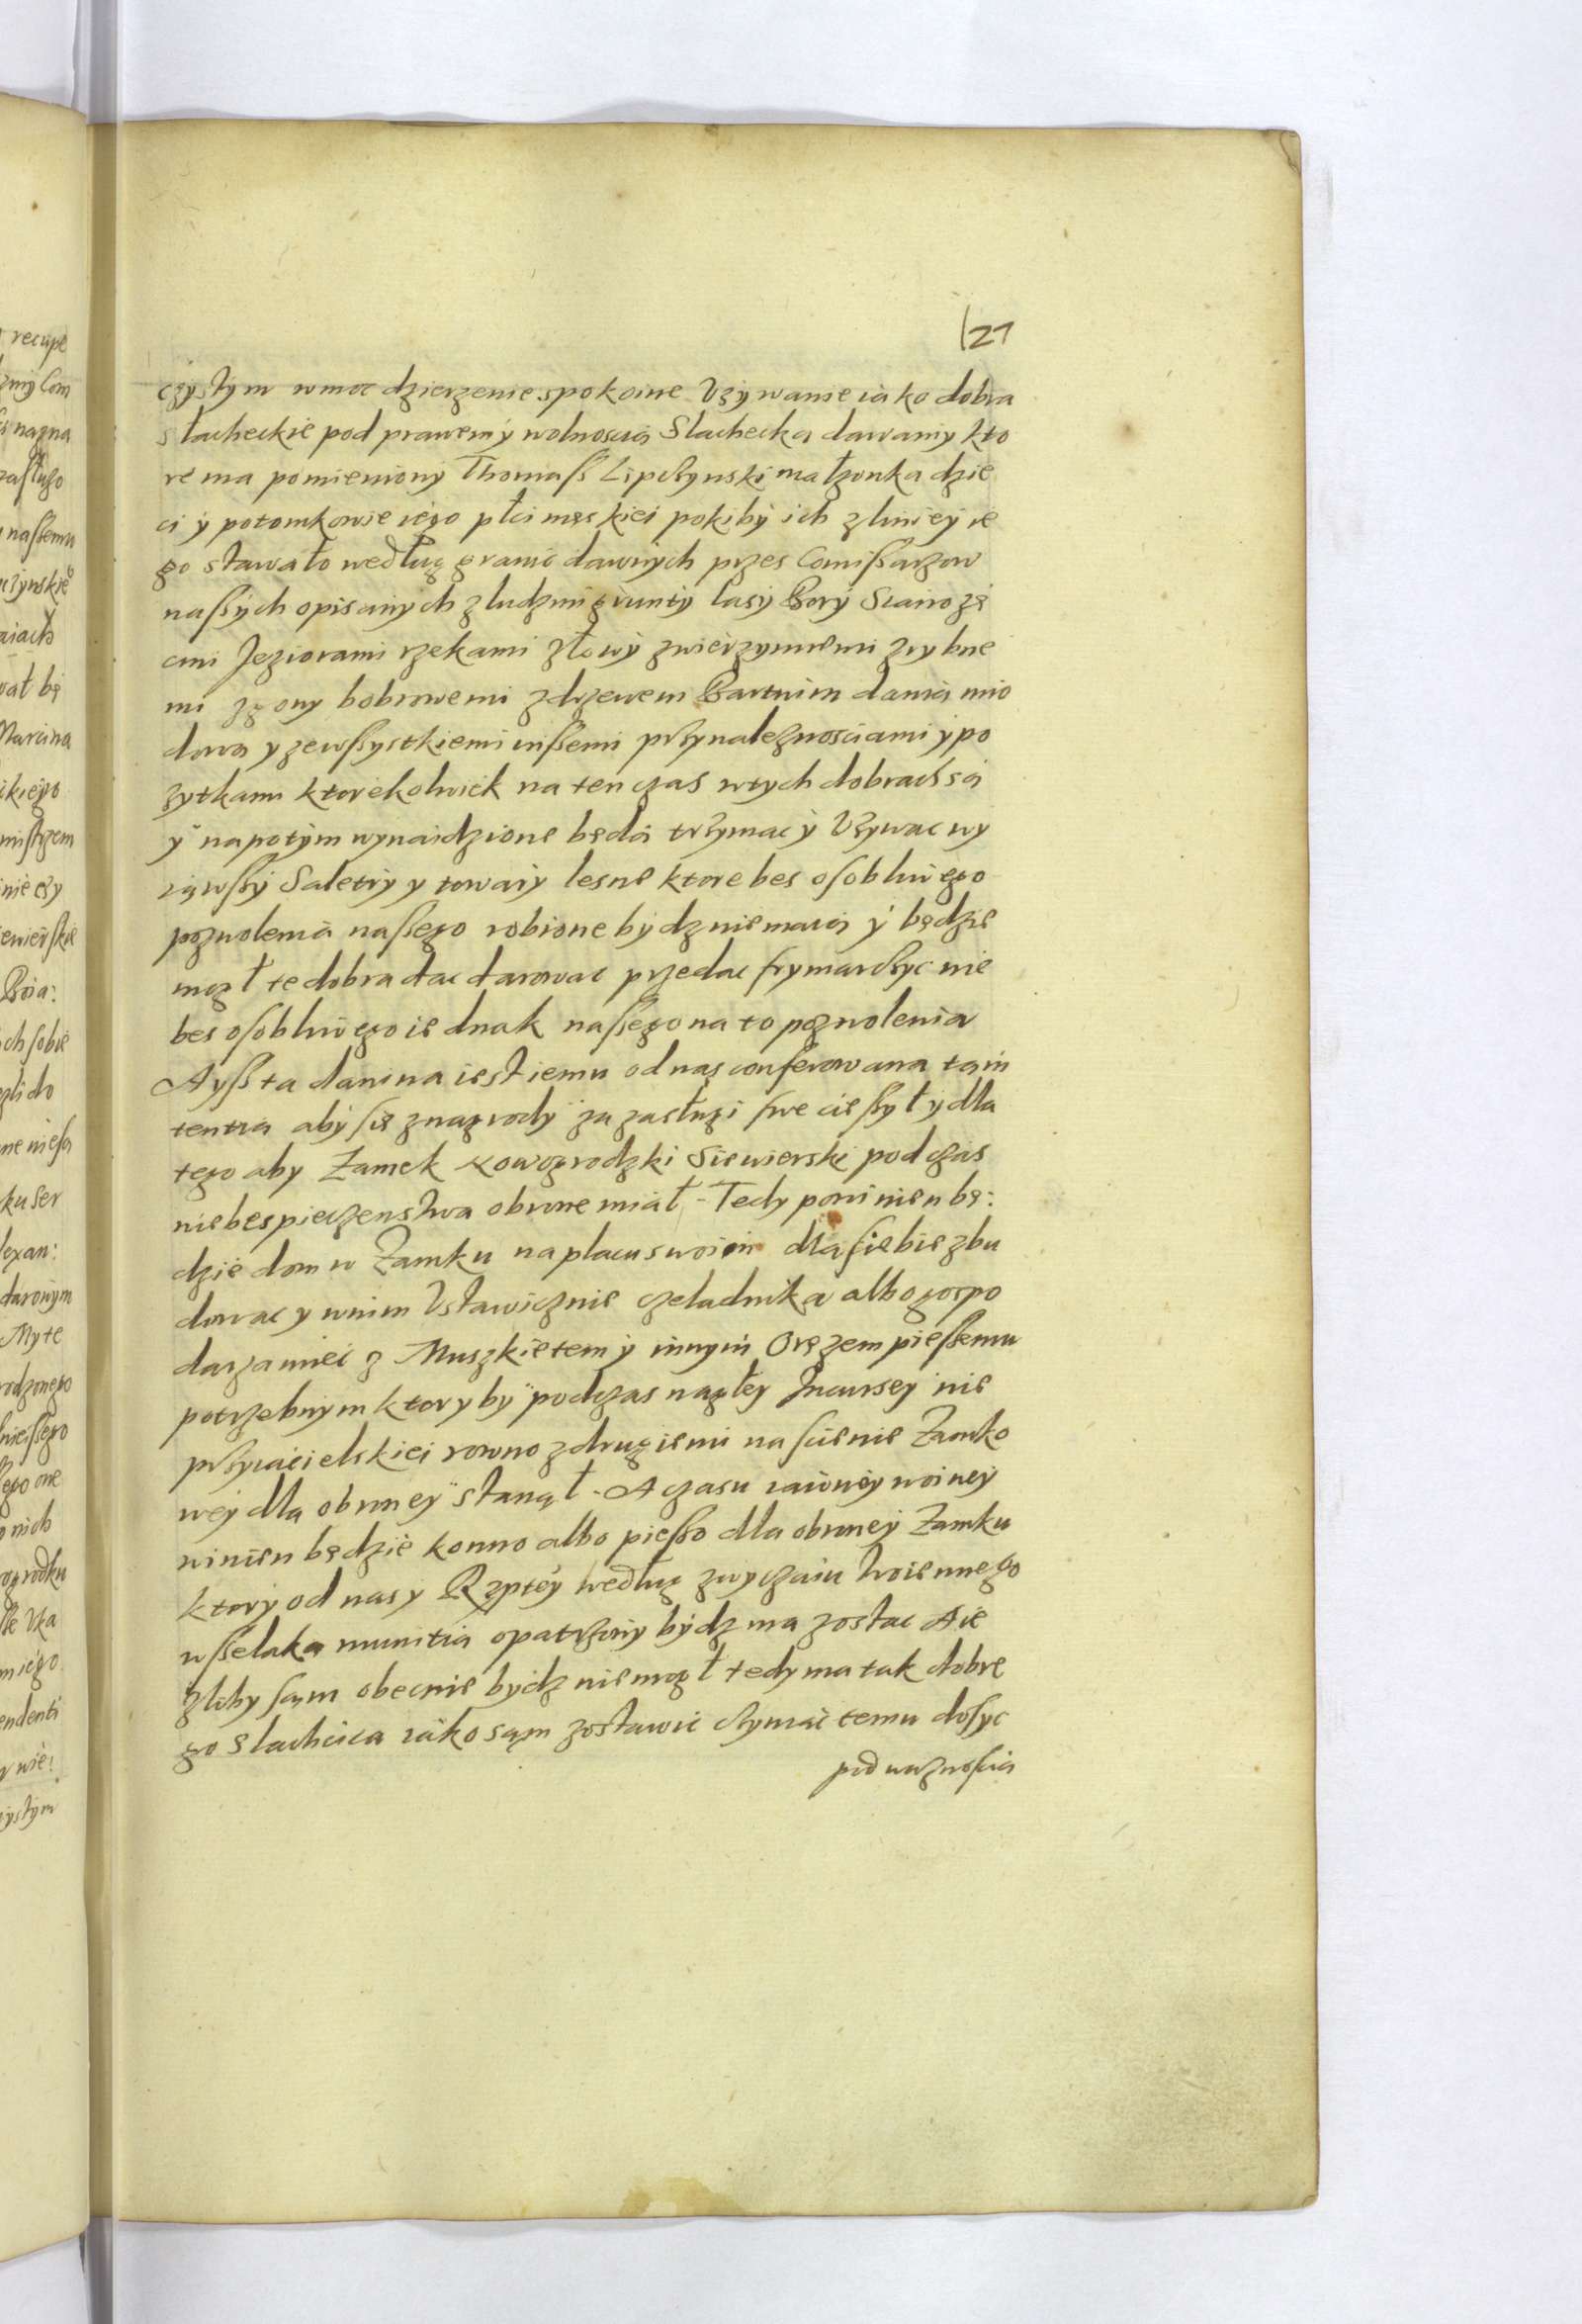 121
czystym w moc dzierzenie spokoine Uzywanie iako dobra
slacheckie pod prawem ÿ wolnoscią Slachecką dawamy kto
re ma pomieniony Thomaß Lipczynski małzonka dzie
ci ÿ potomkowie iego płci męskiei pokibÿ ich z liniey ie
go stawało według granic dawnÿch przes Comißarzow
naßÿch opisanÿch z ludzmi grunty lasÿ Borÿ Sianozę
cmi Jeziorami rzekami złowÿ zwierzynnemi zrybne
mi zgony bobrowemi zdrzewem Bartnim danią mio
dową y zewßystkiemi inßemi przynaleznosciami ÿ po
zytkami ktorekolwiek na ten czas w tych dobrach są
ÿ napotÿm wynaidzione będą trzymac ÿ Uzywac wy
iąwßÿ Saletrÿ y towarÿ lesne ktore bes osobliwego
pozwolenia naßego robione bÿdz niemaią ÿ będzie
mogł te dobra dac darowac przedac frymarczyc nie
bes osobliwego iednak naßego na to pozwolenia
Ayß ta danina iest iemu od nas conferowana ta in
tentia abÿ się znagrody za zasługi swe cießył ÿ dla
tego aby Zamek Nowogrodzki Siewierski pod czas
niebespieczenstwa obrone miał - Tedy powinien bę:
dzie dom w Zamku na placu swoim dla siebie zbu
dowac y wnim Ustawicznie czeladnika albo gospo
darza miec z Muszkietem ÿ innym Oręzem pießemu
potrzebnym ktory by podczas nagłey Incursey nie
przyiacielskiei rowno z drugiemi na scienie Zamko
wey dla obrony stanął - A czasu iawney woiney
winien będzie konno albo pießo dla obroney Zamku
ktorÿ od nas y Rzptey według zwyczaiu Woiennego
wßelaką munitią opatrzony bÿdz ma zostac A ie
zliby sąm obecnie bydz niemogł tedy ma tak dobre
go Slachcica iako sąm zostawic czyniąc temu dosyc
pod waznoscią